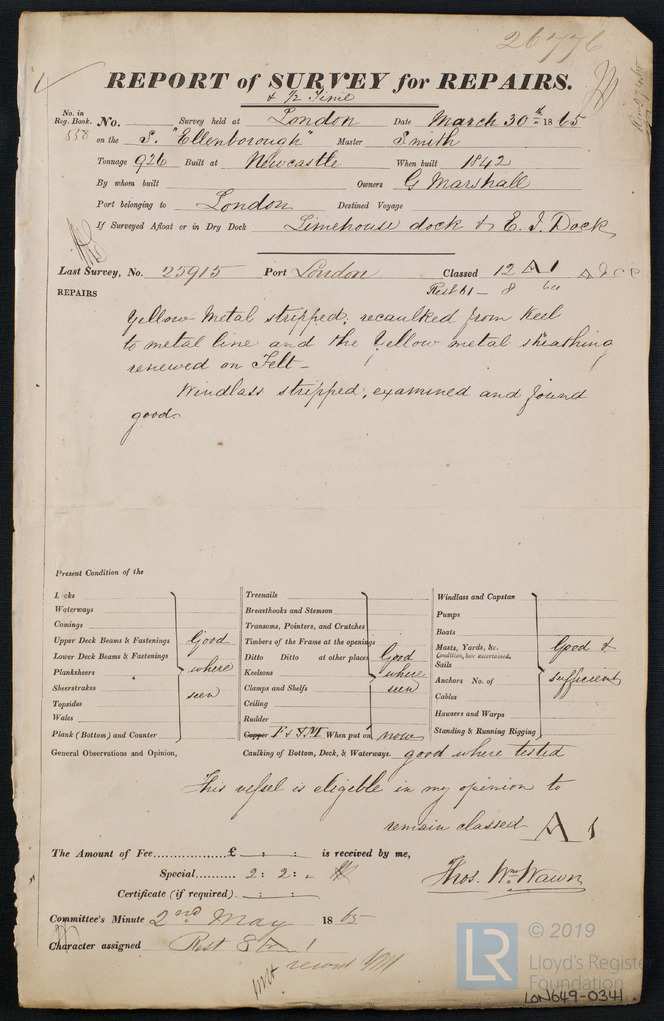 26776
REPORT of SURVEY for REPAIRS.
& 1/2 Time
No. in Reg. Book. 558 No. Survey held at London Date March 30th 1865
on the S. "Ellenborough" Master Smith
Tonnage 926 Built at Newcastle When built 1842
By whom built Owners G Marshall
Port belonging to London Destined Voyage
If Surveyed Afloat or in Dry Dock Limehouse dock & E. I. Dock
Last Survey, No. 25915 Port London Classed 12 A 1
Rest 61 - 8
REPAIRS
Yellow Metal stripped, recaulked from Keel
to metal line and the Yellow metal sheathing
renewed on Felt -
Windlass stripped, examined and found
good.
Present Condition of the
Decks
Waterways
Comings
Upper Deck Beams & Fastenings
Lower Deck Beams & Fastenings
Planksheers
Sheerstrakes
Topsides
Wales
Plank (Bottom) and Counter
Good
where
seen
Treenails
Breasthooks and Stemson
Transoms, Pointers, and Crutches
Timbers of the Frame at the openings
Ditto Ditto at other places
Keelsons
Clamps and Shelfs
Ceiling
Rudder
Good
where
seen
Copper F & Y.M When put on now
Windlass and Capstan
Pumps
Boats
Masts, Yards, &c.
Condition, how ascertained.
Sails
Anchors No. of
Cables
Hawsers and Warps
Standing & Running Rigging
Good &
sufficient
General Observations and Opinion, Caulking of Bottom, Deck, & Waterways. good where tested
This vessel is eligible in my opinion to
remain classed A 1
The Amount of Fee..................£ : : is received by me,
Special.......... 2 : 2 : -
Certificate (if required) . : :
Thos. Wm. Wawn
Committee's Minute 2nd May 1865
Character assigned Rest 8 A 1
record
© 2019
LR
Lloyd's Register
Foundation
LON649-0341